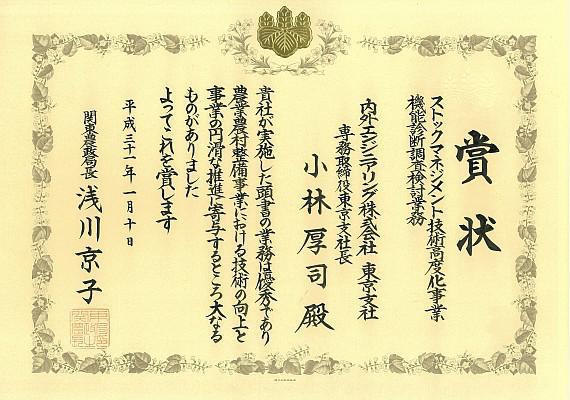 賞状
ストックマネジメント技術高度化事業
機能診断調査検討業務
内外エンジニアリング株式会社 東京支社
専務取締役東京支社長
小林厚司殿
貴社が実施した頭書の業務は優秀であり
農業農村整備事業における技術の向上と
事業の円滑な推進に寄与するところ大なる
ものがありました
よってこれを賞します
平成三十一年一月十日
関東農政局長 浅川京子